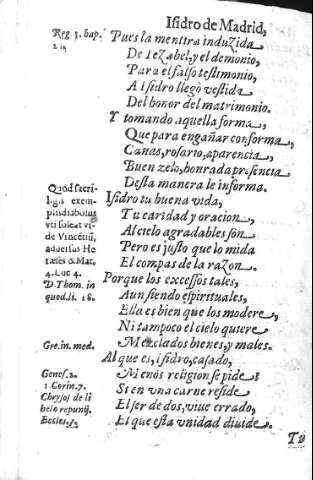 Isidro de Madrid,
Reg. 3. bap.
2 1.
Pues la mentira induzida
De Iezabel, y el demonio,
Para el falso testimonio,
A Isidro llegò vestida
Del honor del matrimonio.
Y tomando aquella forma,
Que para engañar conforma,
Canas, rosario, aparencia,
Buen zelo, honrada presencia
Desta manera le informa.
Quod sacri-
legis exem-
plis diabolus
vti soleat vi-
de Vincētiū,
aduersus He
ræses & Mat.
4. Luc 4.
D Thom. in
quod.li. 18.
Isidro tu buena vida,
Tu caridad y oracion,
Al cielo agradables son
Pero es justo que lo mida
El compas de la razon.
Porque los excessos tales,
Aun siendo espirituales,
Ella es bien que los modere,
Ni tampoco el cielo quiere
Gre. in. med.
Mezclados bienes, y males.
Al que es, Isidro, casado,
Genes. 2.
Menos religion se pide:
1 Corin. 7.
Si en vna carne reside
Chrysos de li
belo repunij.
El ser de dos, viue errado,
Eccles. 5
El que esta vnidad diuide.
Tu